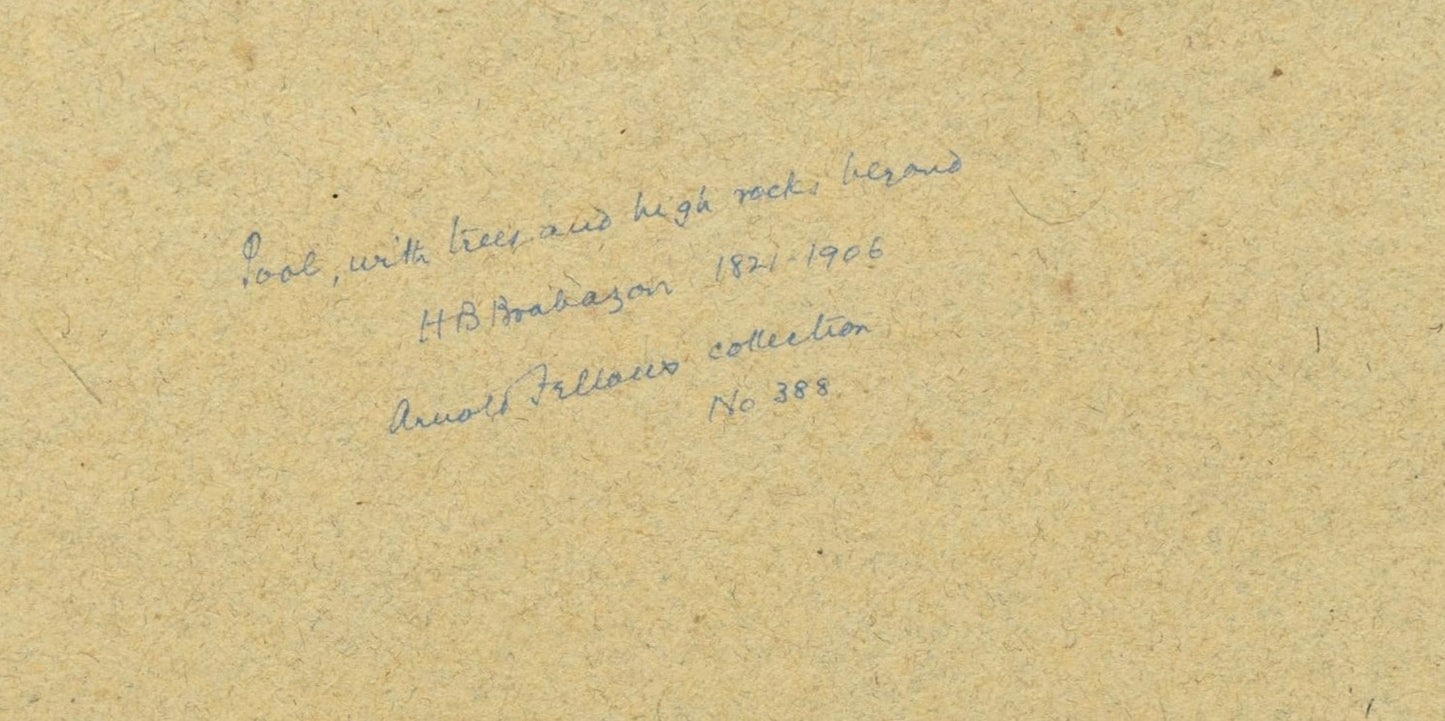 Pool, with trees and high rocks beyond
H B Brabazon 1821-1906
Arnold Fellows collection
No 388